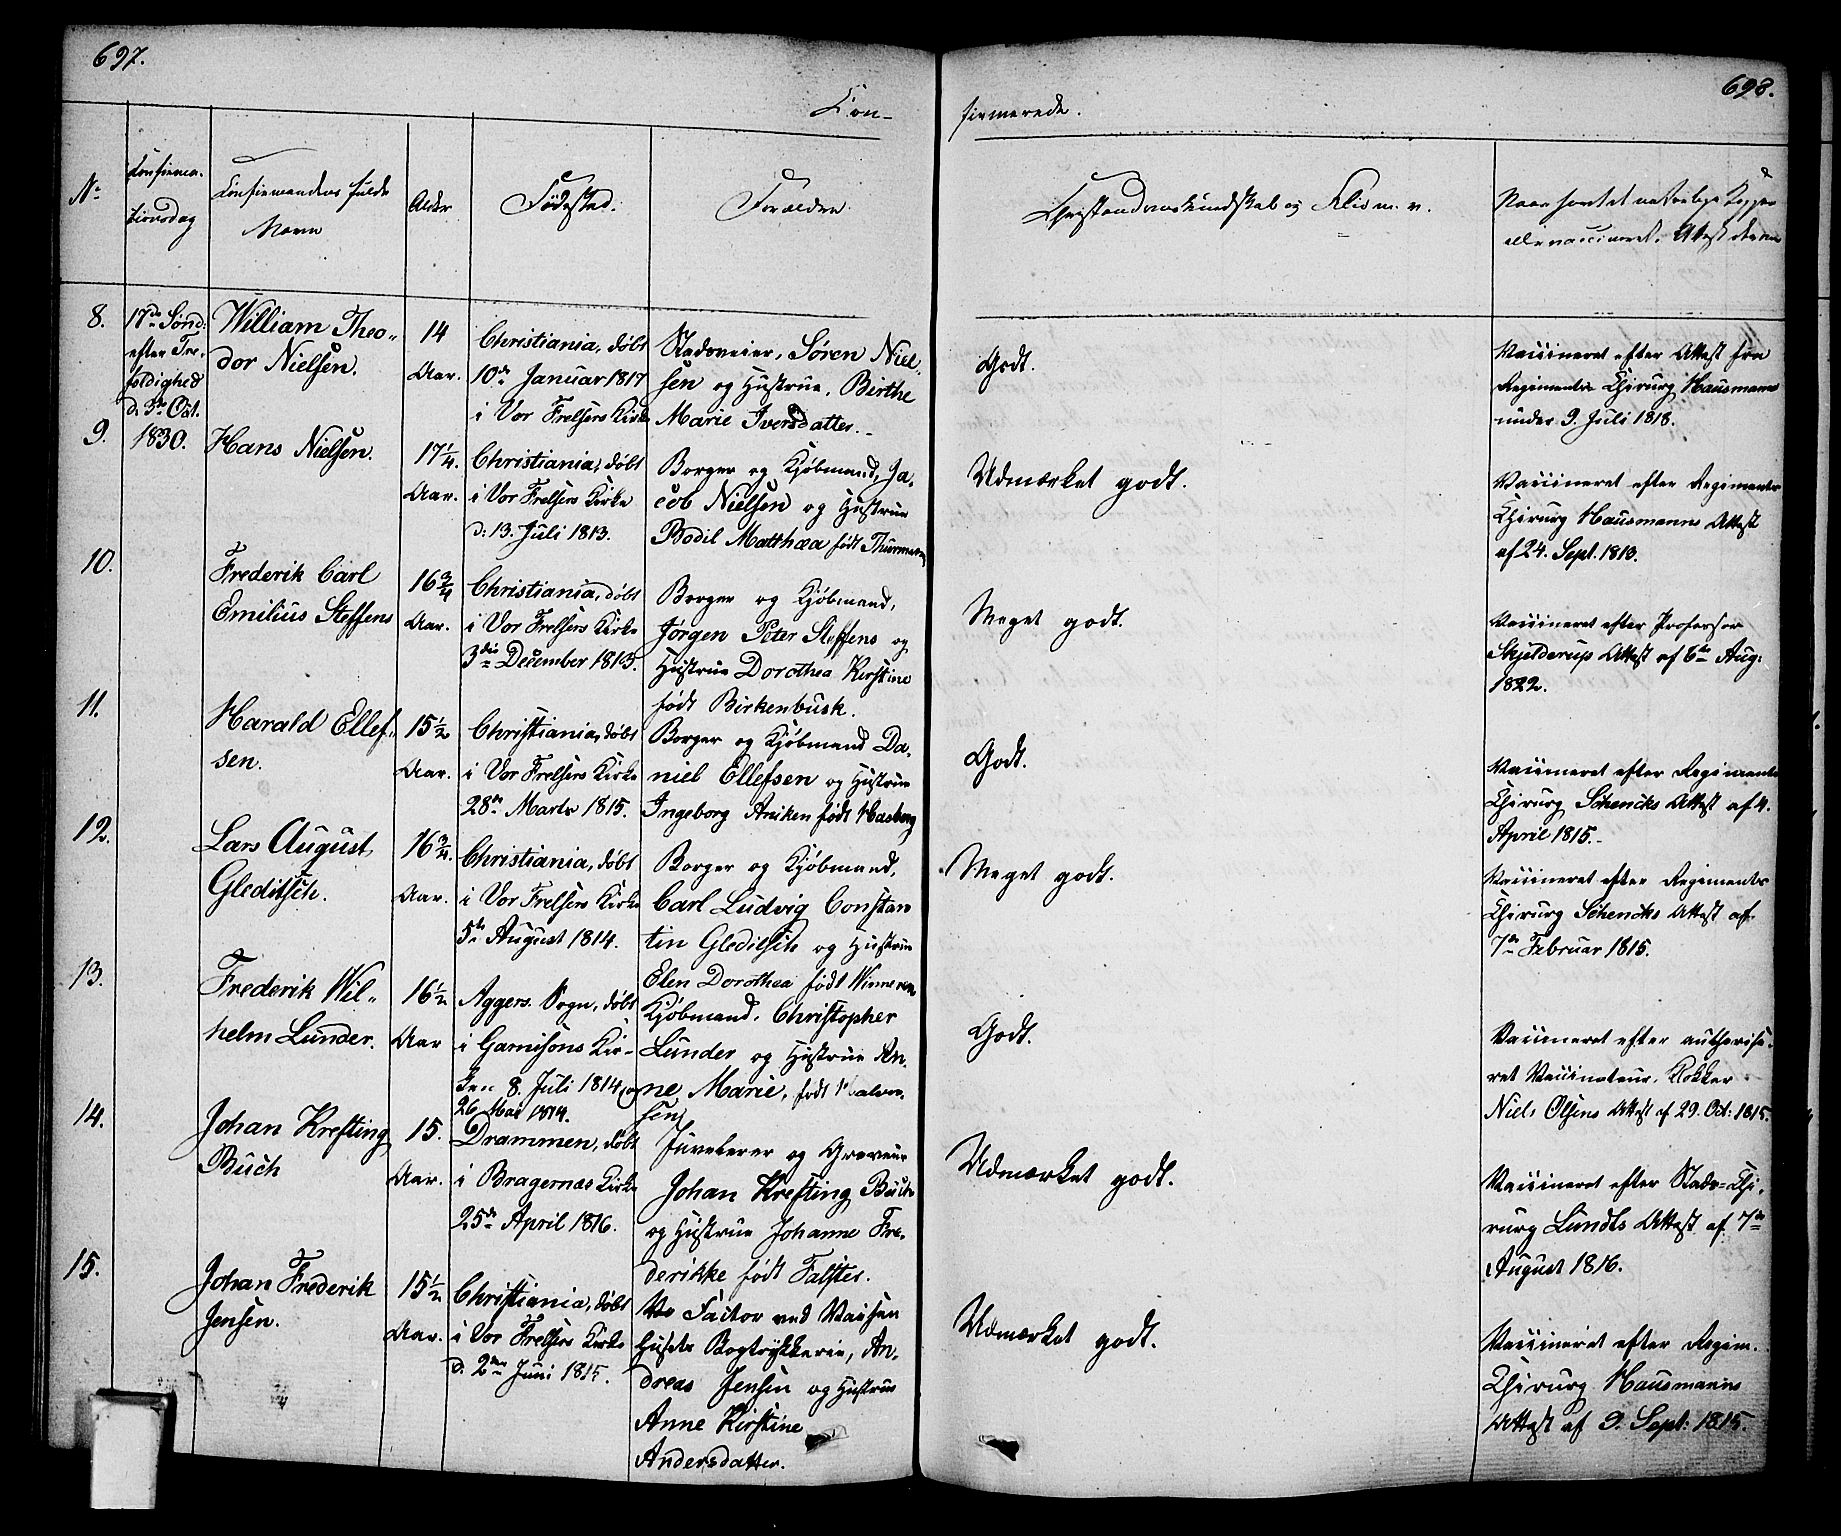 697.
698.
Con-
firmerede.
No
Confirma-
tionsdag
Confirmandens fulde
Navn
Alder
Fødested.
Forældre
Christendomskundskab og Flid m. v.
Naar havt de naturlige Kopper
eller vaccineret.
8.
17de Sønd:
efter Tre-
foldighed
d. 3die Oct.
1830.
William Theo-
dor Nielsen.
14
Aar.
Christiania, døbt
10de Januar 1817
i Vor Frelsers Kirke
Søren Niel-
sen og Hustrue, Berthe
Marie Iversdatter.
Godt.
Vaccineret efter Attest fra
Regiments Chirurg Hausmann
under 9. Juli 1818.
9.
Hans Nielsen.
17 1/4.
Aar.
Christiania, døbt
i Vor Frelsers Kirke
d: 13. Juli 1813.
Borger og Kjøbmand, Ja-
cob Nielsen og Hustrue
Bodil Matthæa født Thurmann
Udmærket godt.
Vaccineret efter Regiments
Chirurg Hausmanns Attest
af 24. Sept. 1813.
10.
Frederik Carl
Emilius Steffens
16 3/4
Aar.
Christiania, døbt
i Vor Frelsers Kirke
3die December 1813.
Borger og Kjøbmand,
Jørgen Peter Steffens og
Hustrue Dorothea Kirstine
født Birkenbusk.
Meget godt.
Vaccineret efter Professor
Skjelderup Attest af 6te Aug:
1822.
11.
Harald Ellef-
sen.
15 1/2
Aar.
Christiania, døbt
i Vor Frelsers Kirke
28de Marts 1815.
Borger og Kjøbmand Da-
niel Ellefsen og Hustrue
Ingeborg Aniken født Hasberg
Godt.
Vaccineret efter Regiments
Chirurg Schencks Attest af 4.
April 1815.-
12.
Lars August
Gleditsch.
16 3/4.
Aar.
Christiania, døbt
i Vor Frelsers Kirke
5te August 1814.
Borger og Kjøbmand,
Carl Ludvig Constan
tin Gleditsch og Hustrue
Elen Dorothea født
Meget godt.
Vaccineret efter Regiments
Chirurg Schencks Attest af
7de Februar 1815.
13.
Frederik Wil-
helm Lunder.
16 1/2
Aar
Aggers Sogn, døbt
i Garnisons Kir-
ken 8. Juli 1814
26 Mai 1814.
Kjøbmand, Christopher
Lunder og Hustrue An-
ne Marie, født Halvor-
sen
Godt.
Vaccineret efter authorise-
ret Vaccinateur, Klokker
Niels Olsens Attest af 29. Oct: 1815.
14.
Johan Krefting
Busch
15.
Aar.
Drammen, døbt
i Bragernæs Kirke
25de April 1816.
Juvelerer og Graveur
Johan Krefting Busch
og Hustrue Johanne Fre-
derikke født Falster.
Udmærket godt.
Vaccineret efter Stads-Chi-
rurg Lundts Attest af 7de
August 1816.
15.
Johan Frederik
Jensen.
15 1/2
Aar.
Christiania, døbt
i Vor Frelsers Kirke
d. 2den Juni 1815.
Factor ved Vaisen
Husets Bogtrykkerie, An-
dreas Jensen og Hustrue
Anne Kirstine
Andersdatter.
Udmærket godt.
Vaccineret efter Regim.
Chirurg Hausmanns
Attest af 9. Sept: 1815.